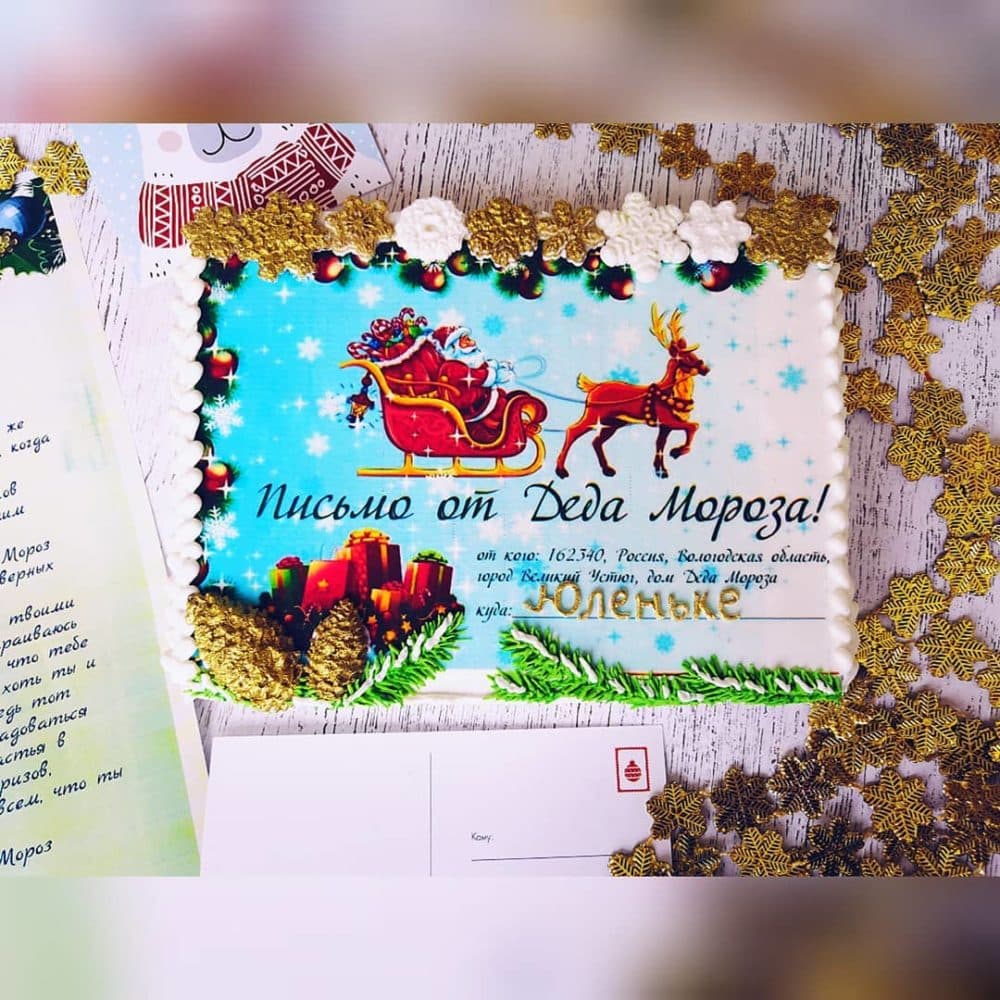 Письмо от Деда Мороза!
от кого: 162340, Россия, Вологодская область,
город Великий Устюг, дом Деда Мороза
куда: Юленьке
же
когда
Мороз
твоими
что тебе
хоть ты и
тот
в
всем, что ты
Мороз
Кому: